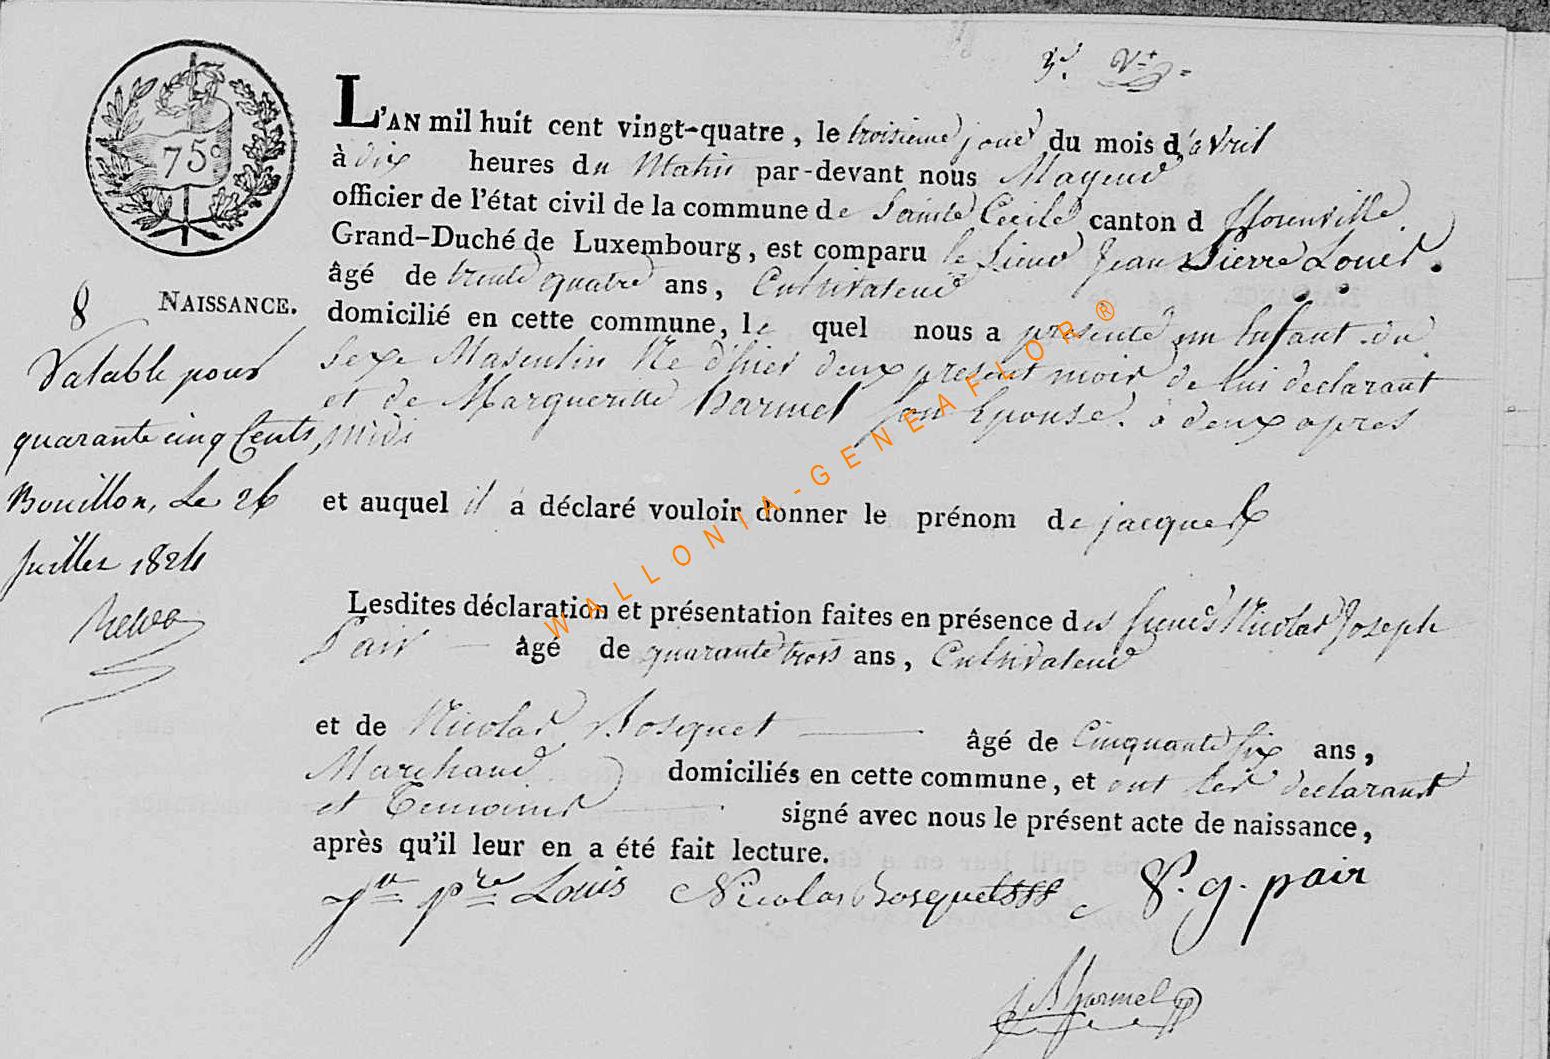 3e. Vt
75c
L'AN mil huit cent vingt-quatre, le troisieme jour du mois d'avril
à dix heures du Matin par-devant nous Mayeur
officier de l'état civil de la commune de Sainte Cecile canton d florenville
Grand-Duché de Luxembourg, est comparu le Sieur Jean Pierre Louis.
âgé de trente quatre ans, Cultivateur
8 NAISSANCE.
domicilié en cette commune, le quel nous a presenté un Enfant du
Sexe Masculin Né d'hier deux present mois de lui declarant
et de Margueritte Darmel son Epouse. a deux apres
midi
Valable pour
quarante cinq Cents,
Bouillon, Le 26
Juillet 1824
et auquel il a déclaré vouloir donner le prénom de jacques
Lesdites déclaration et présentation faites en présence des sieurs Nicolas Joseph
Pair âgé de quarante trois ans, Cultivateur
et de Nicolas Bosquet âgé de Cinquante six ans,
Marchand domiciliés en cette commune, et ont les declarant
et Temoins signé avec nous le présent acte de naissance,
après qu'il leur en a été fait lecture.
jn pre Louis Nicolas Bosquet
g. pair
WALLONIA-GENEAFLOR®